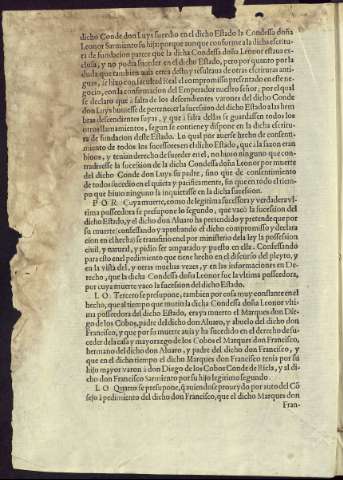 dicho Conde don Luys sucedio en el dicho Estado la Condessa doña
Leonor Sarmiento su hija: porque aunque conforme a la dicha escritu
ra de fundacion parece que la dicha Condessa doña Leonor estaua ex-
clusa, y no podia suceder en el dicho Estado, pero por quanto por la
duda que tambien auia cerca desto y resultaua de otras escrituras anti-
guas, se hizo con facultad Real el compromisso presentado en este ne-
gocio, con la confirmacion del Emperador nuestro señor, por el qual
se declaro que a falta de los descendientes varones del dicho Conde
don Luys huuiesse de pertenecer la sucession del dicho Estado a las hem
bras descendientes suyas, y que a falta dellas se guardassen todos los
otros llamamientos, segun se contiene y dispone en la dicha escritu
ra de fundacion deste Estado. Lo qual por auerse hecho de consenti-
miento de todos los sucessores en el dicho Estado, que a la sazon eran
biuos, y tenian derecho de suceder en el, no huuo ninguno que con-
tradixesse la sucession de la dicha Condessa doña Leonor por muerte
del dicho Conde don Luys su padre, sino que de consentimiento
de todos sucedio en el quieta y pacificamente, sin que en todo el tiem-
po que biuio ninguno la inquietasse en la dicha sucession.
P O R Cuya muerte, como de legitima sucessora y verdadera vl
tima posseedora se presupone lo segundo, que vacò la sucession del
dicho Estado, y el dicho don Aluaro ha pretendido y pretende que por
su muerte: confessando y aprobando el dicho compromisso y declara
cion en el hecho se transfirio en el por ministerio de la ley la possession
ciuil, y natural, y pidio ser amparado y puesto en ella. Confessando
para esto en el pedimiento que tiene hecho en el discurso del pleyto, y
en la vista del, y otras muchas vezes, y en las informaciones en De-
recho, que la dicha Condessa doña Leonor fue la vltima posseedora,
por cuya muerte vaco la sucession del dicho Estado.
L O Tercero se presupone, tambien por cosa muy constante en el
hecho, que al tiempo que murio la dicha Condessa doña Leonor vlti
ma posseedora del dicho Estado, era ya muerto el Marques don Die
go de los Cobos, padre del dicho don Aluaro, y abuelo del dicho don
Francisco, y que por su muerte auia y ha sucedido en el derecho de suce
der de la casa y mayorazgo de los Cobos el Marques don Francisco,
hermano del dicho don Aluaro, y padre del dicho don Francisco, y
que en el dicho tiempo el dicho Marques don Francisco tenia por su
hijo mayor varon à don Diego de los Cobos Conde de Ricla, y al di-
cho don Francisco Sarmiento por su hijo legitimo segundo.
L O Quarto se presupone, q̃ auiendose proueydo por auto del Cõ
sejo à pedimiento del dicho don Francisco, que el dicho Marques don
Fran-